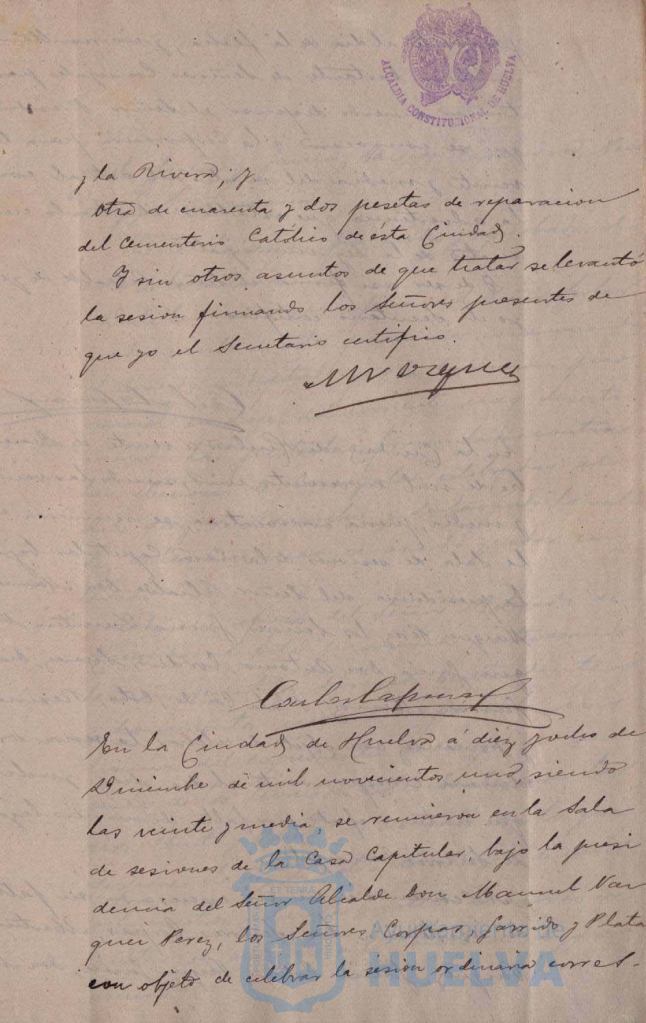 ALCALDIA CONSTITUCIONAL DE HUELVA
y la Rivera; y
otra de cuarenta y dos pesetas de reparacion
del Cementerio Católico de ésta Ciudad.
Y sin otros asuntos de que tratar se levantó
la sesion firmando los Señores presentes de
que yo el Secretario certifico.
En la Ciudad de Huelva á diez y ocho de
Diciembre de mil novecientos uno, siendo
las veinte y media, se reunieron en la Sala
de sesiones de la Casa Capitular, bajo la presi
dencia del Señor Alcalde Don Manuel Vaz
quez Perez, los Señores Corpas, Garrido y Plata
con objeto de celebrar la sesión ordinaria corres-
HUELVA